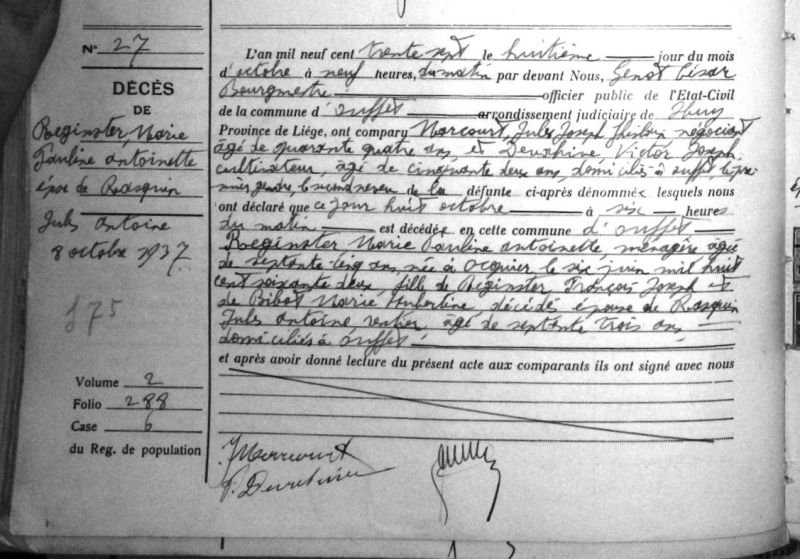 N° 27
DÉCÈS
DE
Reginster, Marie
Pauline antoinette
épse de Rasquin
Jules Antoine
8 octobre 1937
175
Volume 2
Folio 288
Case 6
du Reg. de population
L'an mil neuf cent trente sept le huitième jour du mois
d'octobre à neuf heures, du matin par devant Nous, Genot César
Bourgmestre officier public de l'Etat-Civil
de la commune d'ouffet arrondissement judiciaire de Huy
Province de Liége, ont comparu Marcourt, Jules Joseph négociant
âgé de quarante quatre ans et Victor Joseph
cultivateur, âgé de cinquante deux ans, domiciliés à ouffet le pre-
mier gendre, le second neveu de la défunte ci-après dénommée lesquels nous
ont déclaré que ce jour huit octobre à six heures
du matin est décédée en cette commune d'ouffet
Reginster Marie Pauline antoinette ménagère âgée
de septante cinq ans, née à ocquier le six juin mil huit
cent soixante deux, fille de Reginster, François Joseph et
de Bibot Marie Hubertine, décédés épouse de Rasquin
Jules antoine rentier, âgé de septante trois ans
domiciliés à ouffet
et après avoir donné lecture du présent acte aux comparants ils ont signé avec nous
J Marcourt